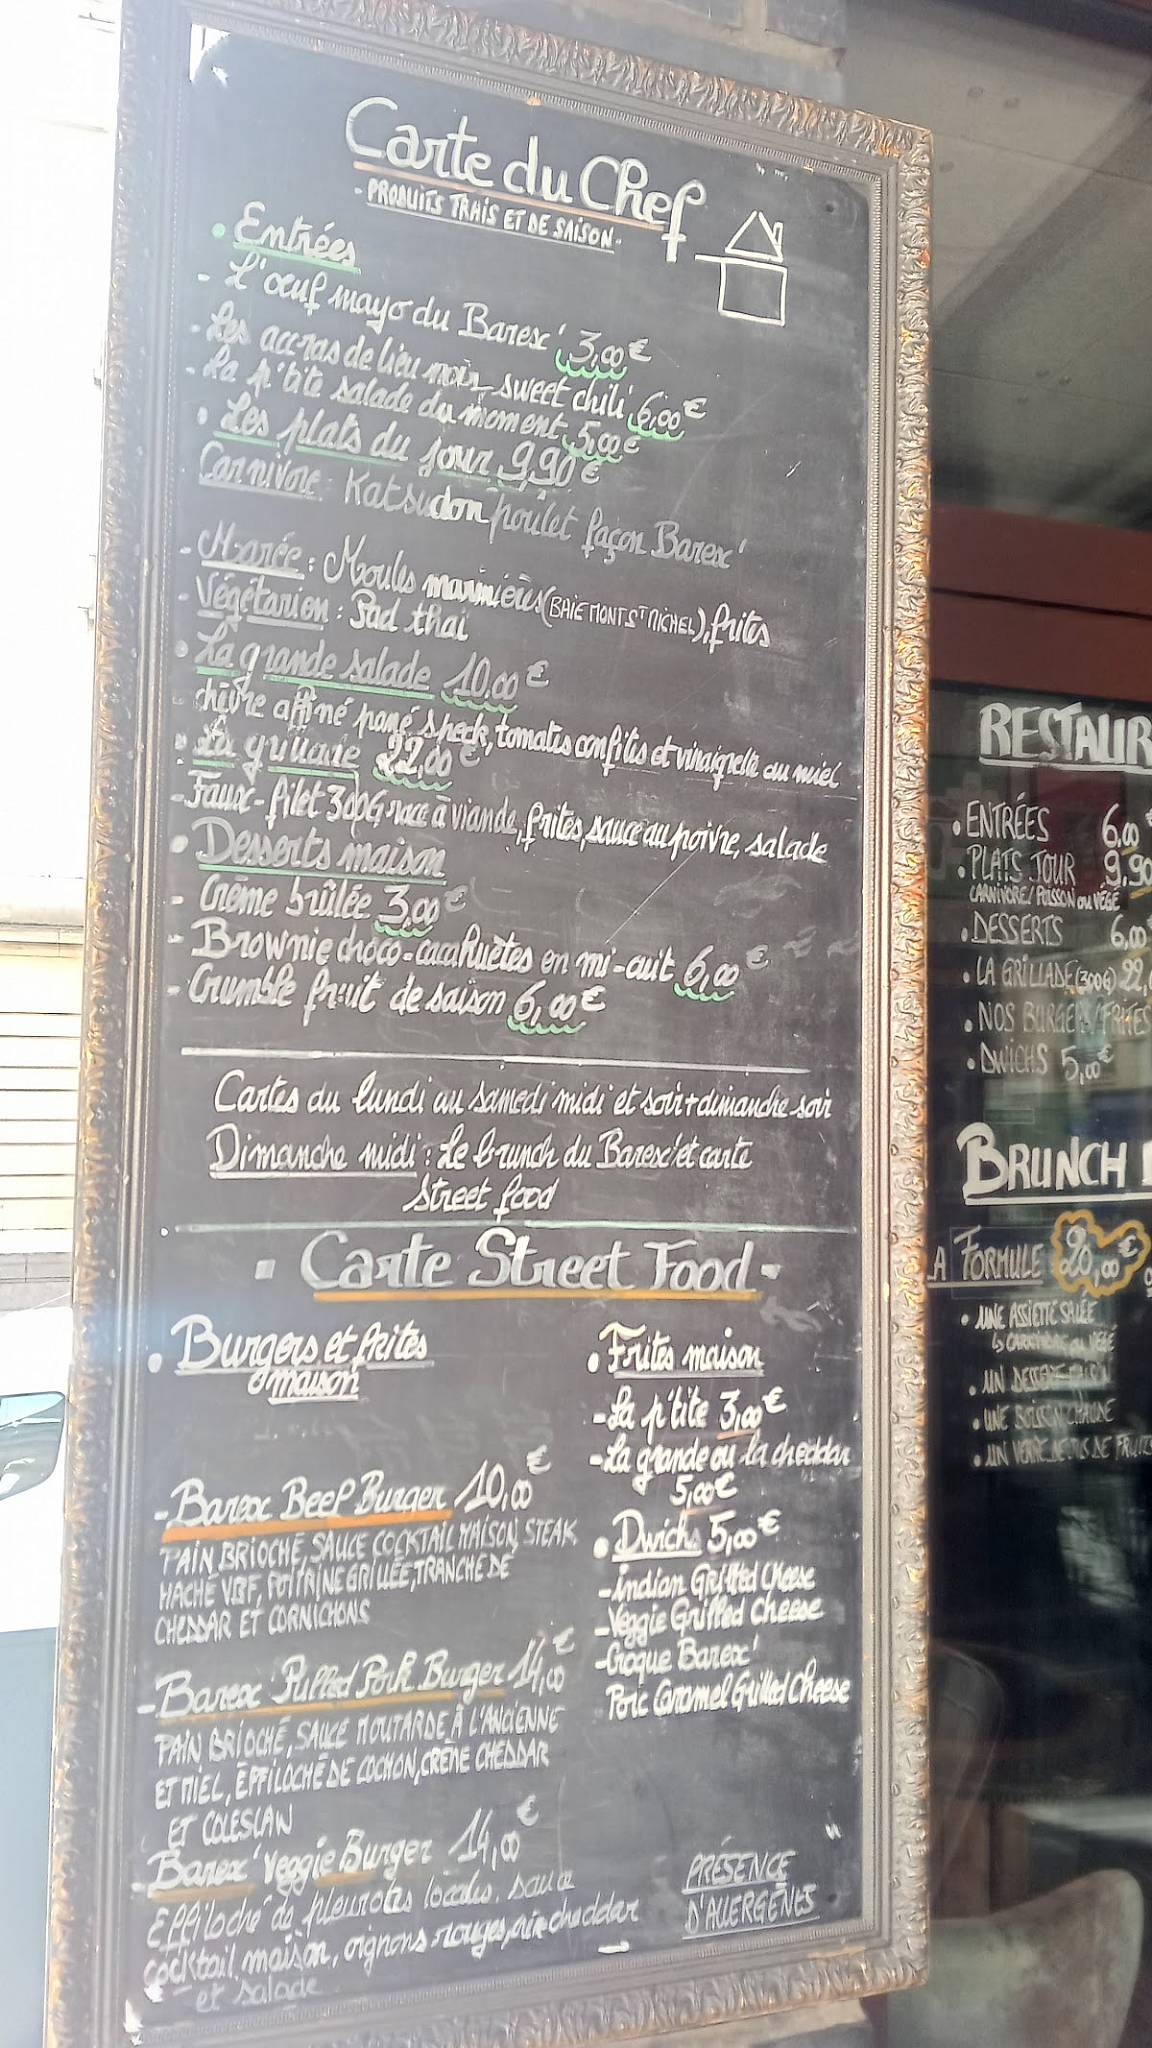 Carte du Chef
- PRODUITS FRAIS ET DE SAISON -
• Entrées
- L'œuf mayo du Barex' 3,00€
- Les accras de lieu noir, sweet chili 6,00€
- La p'tite salade du moment 5,00€
• Les plats du jour 9,90€
Carnivore : Katsudon poulet façon Barex'
- Marée : Moules marinières (BAIE MONT ST MICHEL), frites
- Végétarien : Pad thai
• La grande salade 10,00€
chèvre affiné pané, speck, tomates confites et vinaigrette au miel
• La grillade 22,00€
- Faux-filet 300G race à viande, frites, sauce au poivre, salade
• Desserts maison
- Crème brûlée 3,00€
- Brownie choco-cacahuètes en mi-cuit 6,00€
- Crumble fruit de saison 6,00€
Cartes du lundi au samedi midi et soir + dimanche soir
Dimanche midi : Le brunch du Barex' et carte
Street food
Carte Street Food
• Burgers et frites
maison
- Barex Beef Burger 10,00€
PAIN BRIOCHÉ, SAUCE COCKTAIL MAISON, STEAK
HACHÉ VBF, POITRINE GRILLÉE, TRANCHE DE
CHEDDAR ET CORNICHONS
- Barex Pulled Pork Burger 14,00€
PAIN BRIOCHÉ, SAUCE MOUTARDE À L'ANCIENNE
ET MIEL, EFFILOCHÉ DE COCHON, CRÈME CHEDDAR
ET COLESLAW
- Barex' Veggie Burger 14,00€
Effiloché de pleurotes locales, sauce
cocktail maison, oignons rouges, cheddar
et salade
• Frites maison
- La p'tite 3,00€
- La grande ou la cheddar
5,00€
• Dwichs 5,00€
- Indian Grilled Cheese
- Veggie Grilled Cheese
- Croque Barex'
Porc Caramel Grilled Cheese
PRÉSENCE
D'ALLERGÈNES
RESTAUR
• ENTRÉES 6,00€
• PLATS JOUR 9,90
CARNIVORE / POISSON OU VÉGÉ
• DESSERTS 6,00€
• LA GRILLADE (300G) 22,
• NOS BURGERS / FRITES
• DWICHS 5,00€
BRUNCH
LA FORMULE 20,00€
• UNE ASSIETTE SALÉE
↳ CARNIVORE OU VÉGÉ
• UN DESSERT MAISON
• UNE BOISSON CHAUDE
• UN VERRE DE JUS DE FRUITS